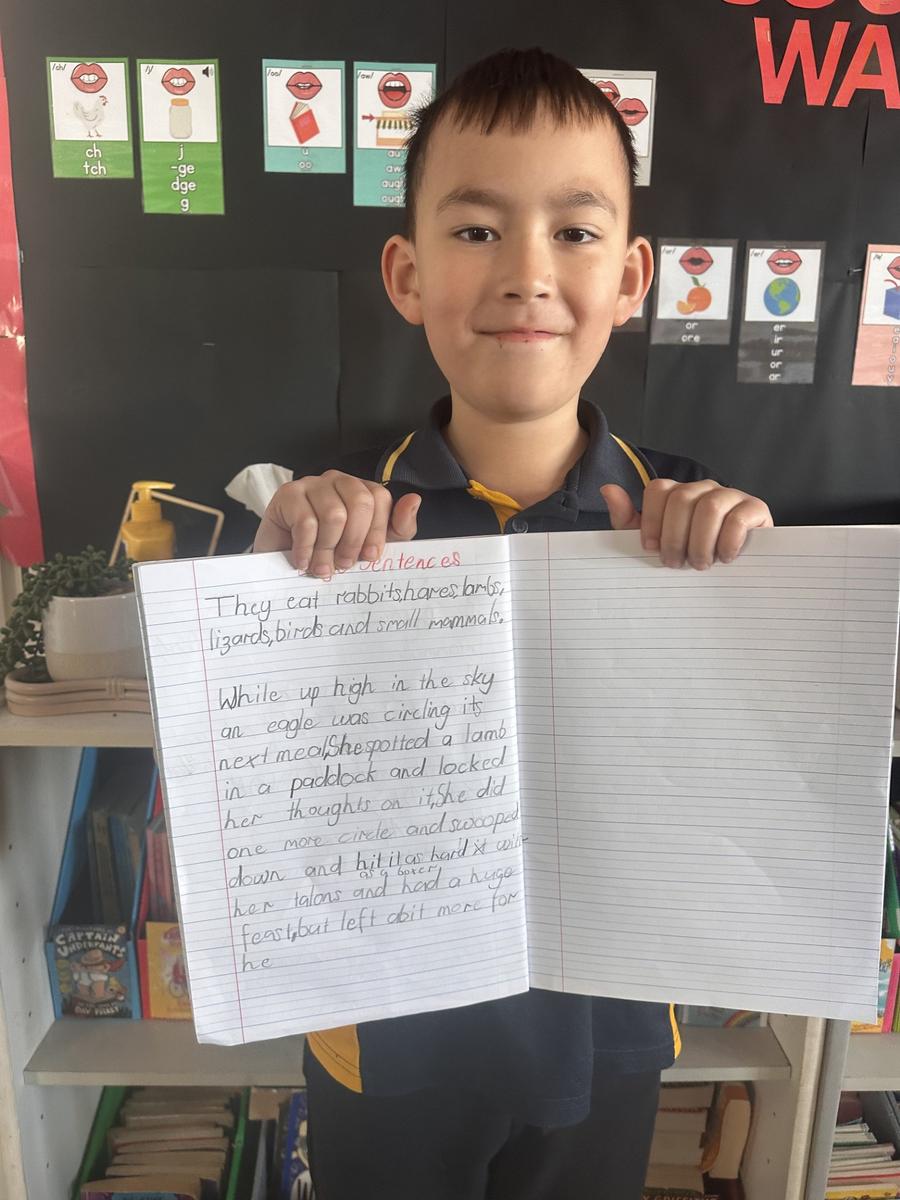 WA
/ch/
ch
tch
/j/
j
-ge
dge
g
/oo/
u
oo
/aw/
au
aw
augh
or
ore
er
ir
ur
or
ar
Sentences
They eat rabbits,hares,lambs,
lizards,birds and small mammals.
While up high in the sky
an eagle was circling its
next meal,She spotted a lamb
in a paddock and locked
her thoughts on it,She did
one more circle and swooped
down and hit it as hard x with
as a boxer
her talons and had a huge
feast,but left abit more for
he
CAPTAIN
UNDERPANTS
DAV PILKEY